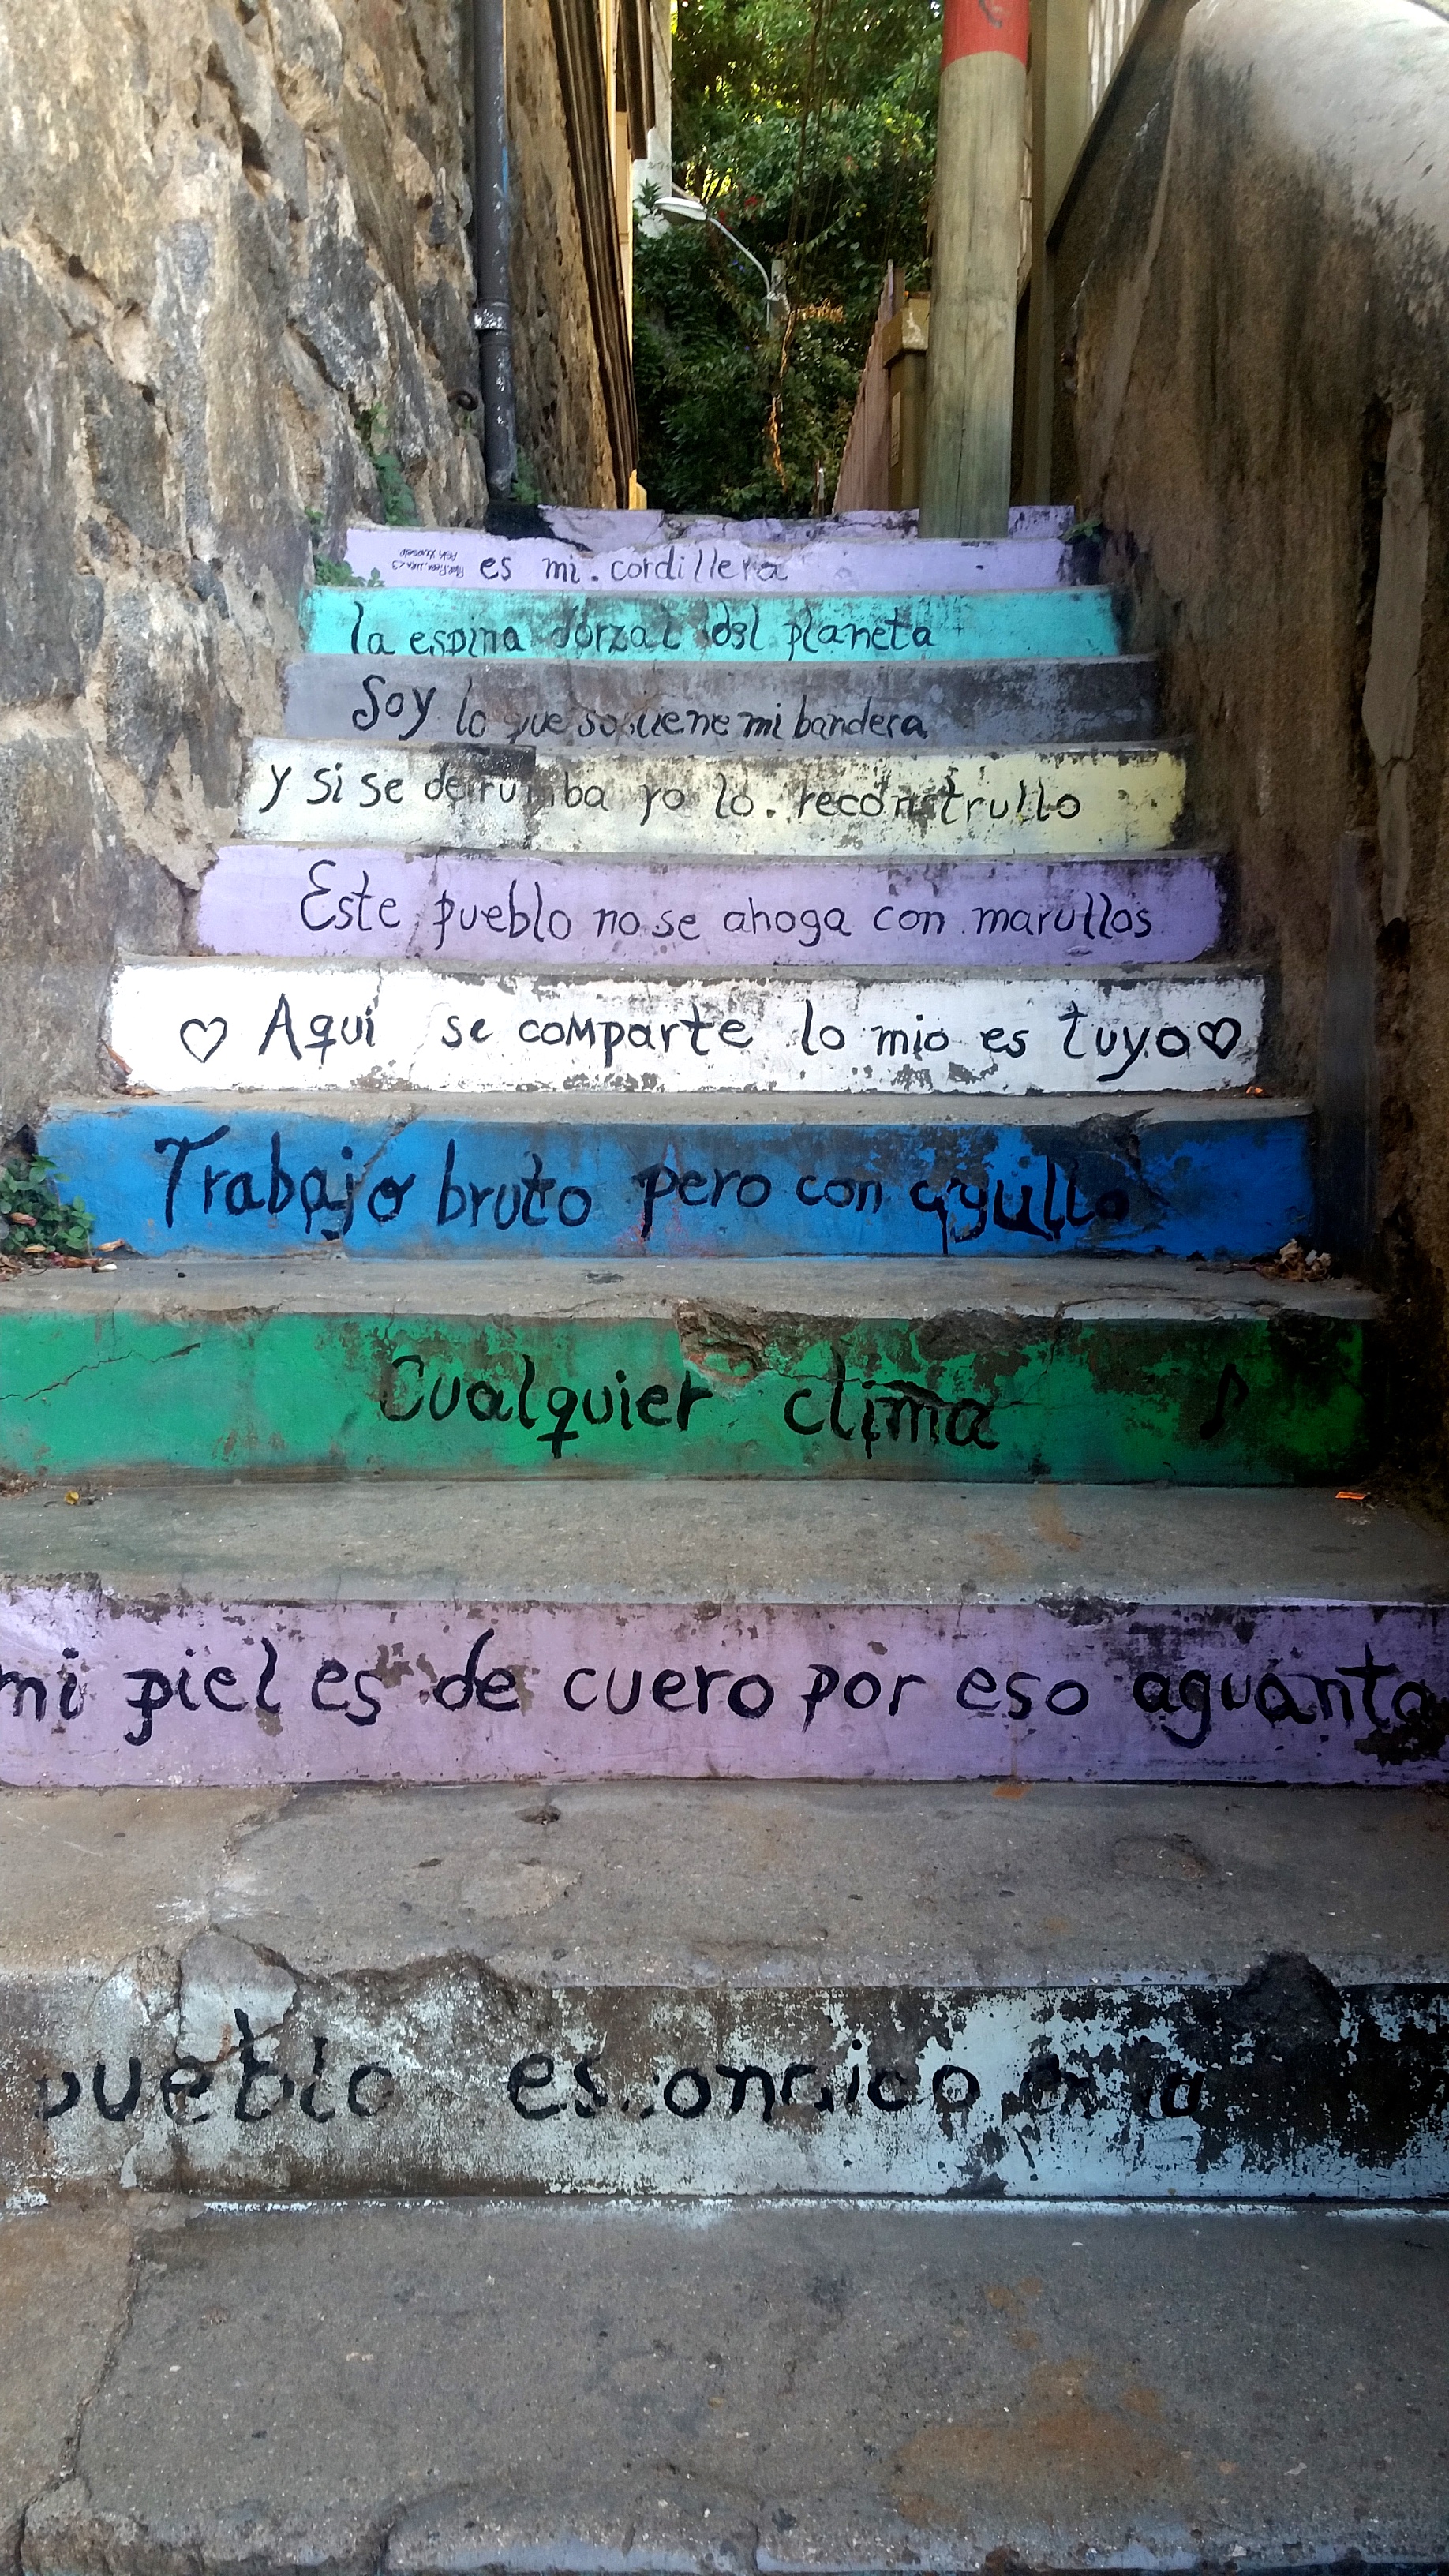 es mi. cordillera
la espina dorzal del planeta
Soy lo que sostiene mi bandera
y si se derrumba yo lo. reconstrullo
Este pueblo no se ahoga con marullos
♡ Aqui se comparte lo mio es tuyo ♡
Trabajo bruto pero con
Cualquier clima ♪
mi piel es de cuero por eso aguanta
pueblo